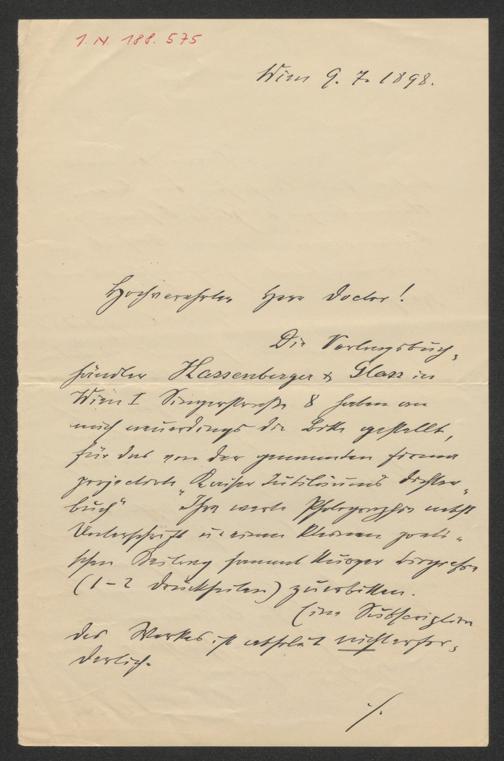 I. N. 188.575
Wien 9. 7. 1898.
Hochverehrter Herr Doctor!
Die Verlagsbuch-
händler Hassenberger & Glass in
Wien I Singerstraße 8 haben an
mich neuerdings die Bitte gestellt,
für das von der genannten Firma
projectirte „Kaiser Jubiläums Dichter-
buch" Ihre werte Photographie nebst
Unterschrift u. einem kleinen poeti-
schen Beitrag sammt kurzer Biografie
(1-2 Druckseiten) zu erbitten.
Eine Subscription
des Werkes ist absolut nicht erfor-
derlich.
./.